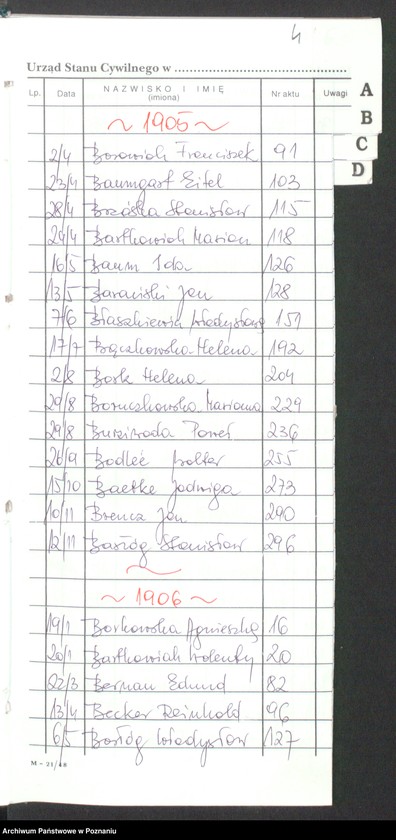 4
Urząd Stanu Cywilnego w
Lp. Data NAZWISKO I IMIĘ (imiona) Nr aktu Uwagi
A
B
C
D
~ 1905 ~
2/4 Borowiak Franciszek 91
23/4 Baumgart Eitel 103
28/4 Brzóska Stanisław 115
29/4 Bartkowiak Marian 118
16/5 Baum Ida 126
13/5 Barański Jan 128
7/6 Błaszkiewicz 151
17/7 Bączkowska Helena 192
2/8 Bork Helena 204
29/8 Boruczkowska Marianna 229
29/8 Paweł 236
26/9 255
15/10 Baetke Jadwiga 273
10/11 Brencz Jan 290
12/11 Bartóg Stanisław 296
~ 1906 ~
19/1 Borkowska Agnieszka 16
20/1 Bartkowiak Walenty 20
22/3 Berman Edmund 82
13/4 Becker Reinhold 96
6/5 Władysław 127
M – 21/48
Archiwum Państwowe w Poznaniu